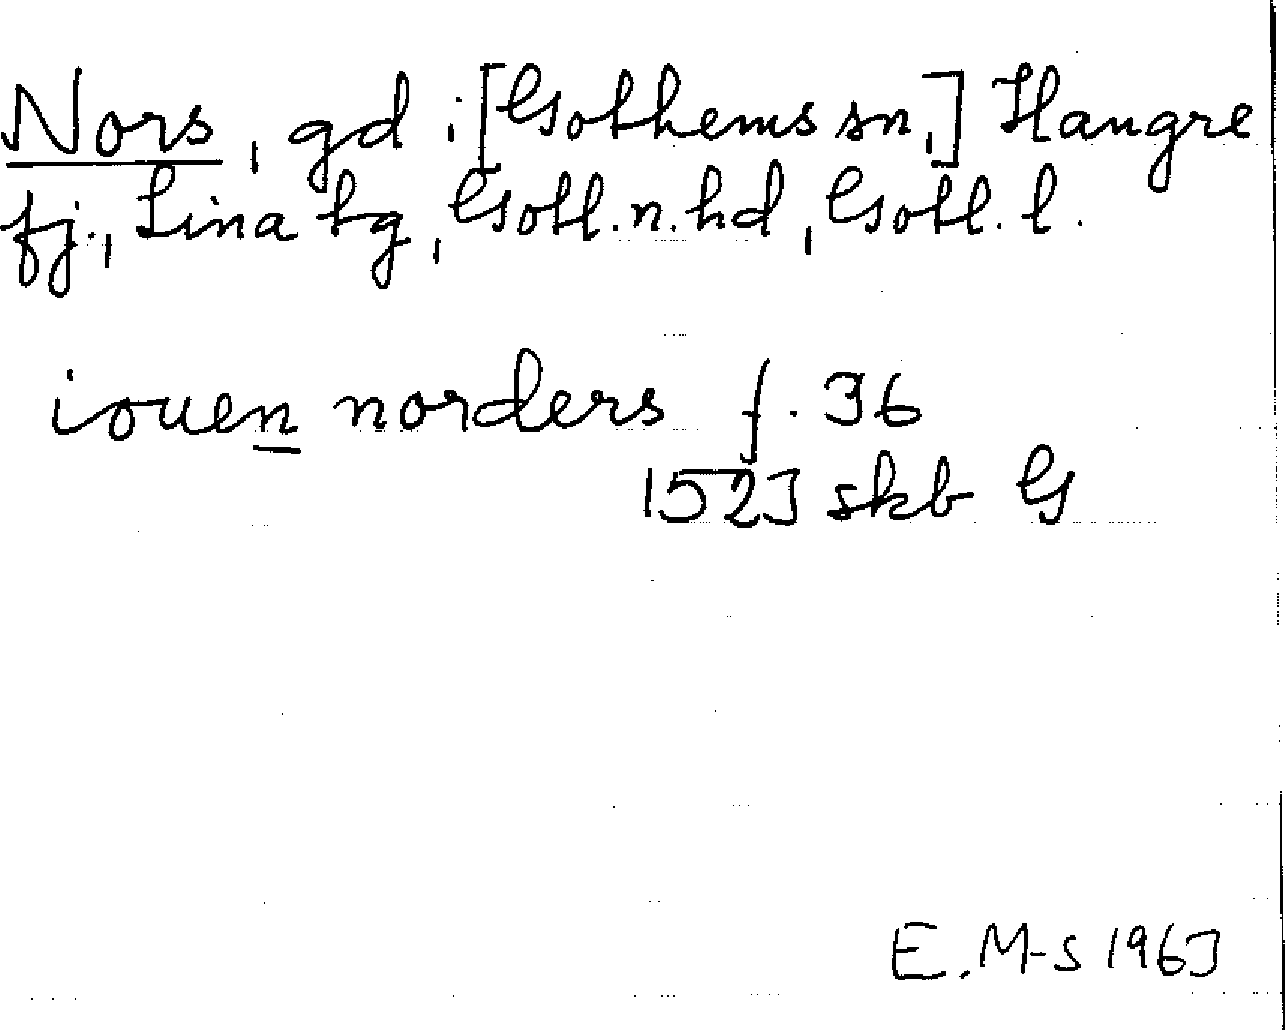 Nors, gd i [Gothems sn,] Hangre
fj., Lina tg, Gotl. n. hd, Gotl. l.
iouen norders f. 36
1523 skb G
E. M-S 1963